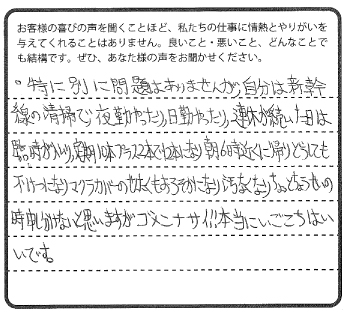 お客様の喜びの声を聞くことほど、私たちの仕事に情熱とやりがいを
与えてくれることはありません。良いこと・悪いこと、どんなことで
も結構です。ぜひ、あなた様の声をお聞かせください。
特に別に問題はありませんが自分は新幹
線の清掃で夜勤やったり、日勤やったり、連休が続いた日は
臨時がが入り、定期10本プラス2本で12本になり朝6時近くに帰りどうしても
不ケツになりマクラカバーの
時申しわけないと思いますがゴメンナサイ!!本当にいごこちはい
いです。